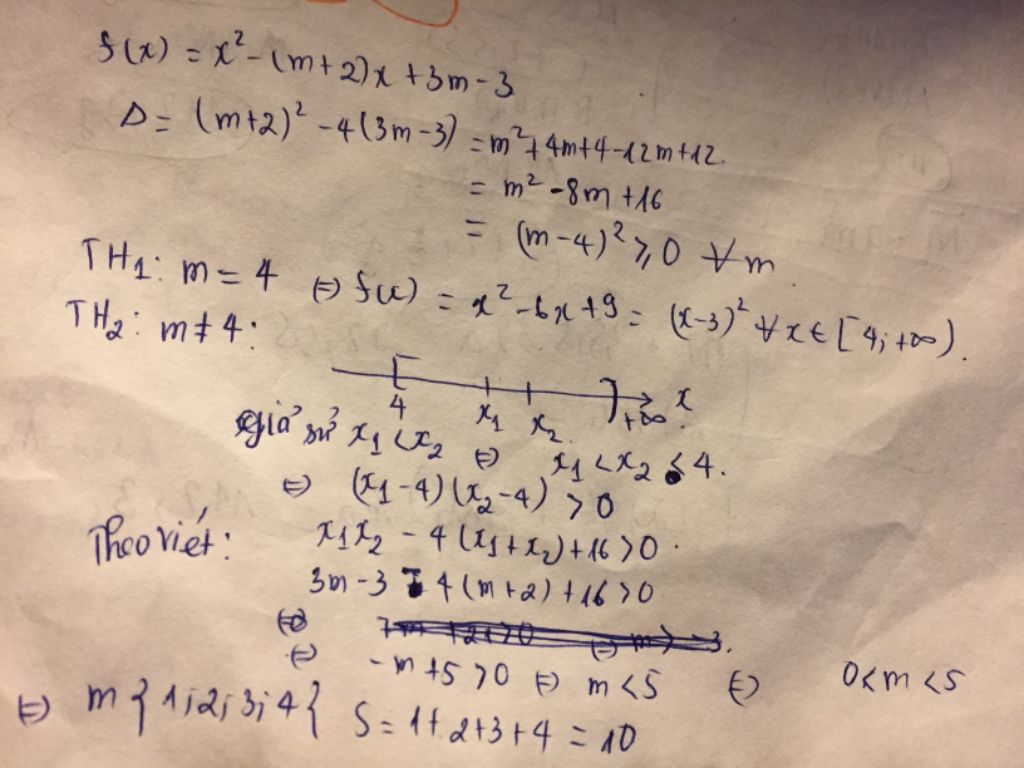 f(x) = x² - (m+2)x + 3m - 3
Δ = (m+2)² - 4(3m-3) = m² + 4m + 4 - 12m + 12.
= m² - 8m + 16
= (m-4)² ≥ 0 ∀m
TH1: m = 4 ⇔ f(x) = x² - 6x + 9 = (x-3)² ∀x ∈ [4; +∞).
TH2: m ≠ 4:
4 x1 x2 +∞ x
giả sử x1 < x2 ⇔ x1 < x2 ≤ 4.
⇔ (x1 - 4)(x2 - 4) > 0
Theo viét: x1x2 - 4(x1 + x2) + 16 > 0.
3m - 3 - 4(m+2) + 16 > 0
⇔
⇔ -m + 5 > 0 ⇔ m < 5 ⇔ 0 < m < 5
⇔ m {1; 2; 3; 4{ S = 1 + 2 + 3 + 4 = 10